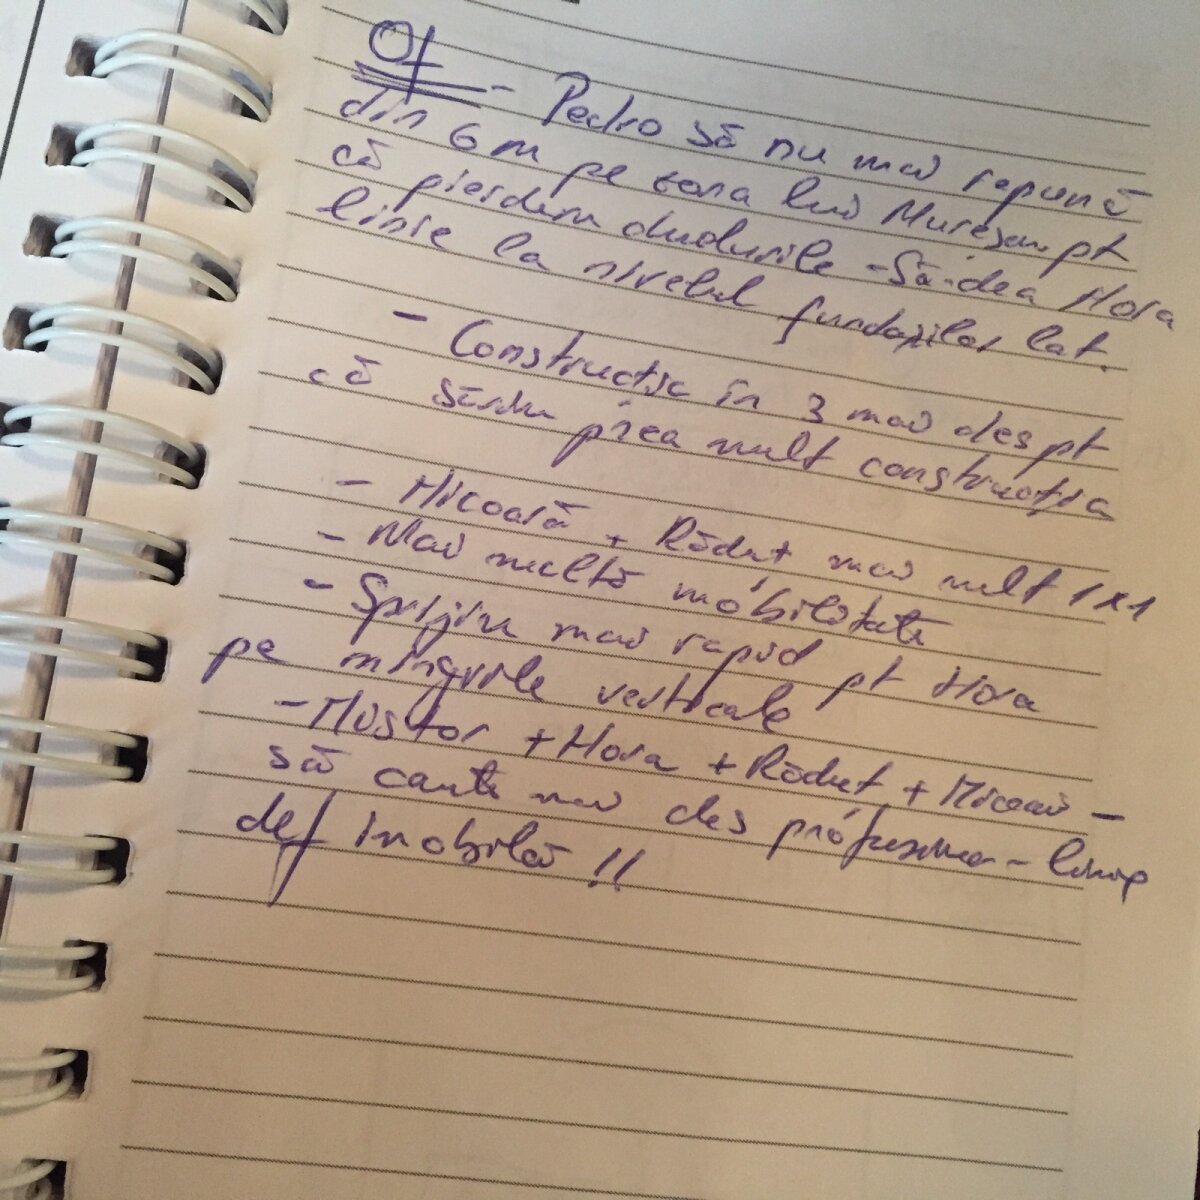 Of - Pedro să nu mai repună
din 6 m pe zona lui Mureșan pt
că pierdem duelurile - Să-dea Hora
linie la nivelul fundașilor lat.
- Construcția în 3 mai des pt
că sărim prea mult construcția
- Hicoară + Răduț mai mult 1x1
- Mai multă mobilitate
- Sprijin mai rapid pt Hora
pe mingiile verticale
- Nistor + Hora + Răduț +
să caute mai des profunzimea -
def imobilă !!